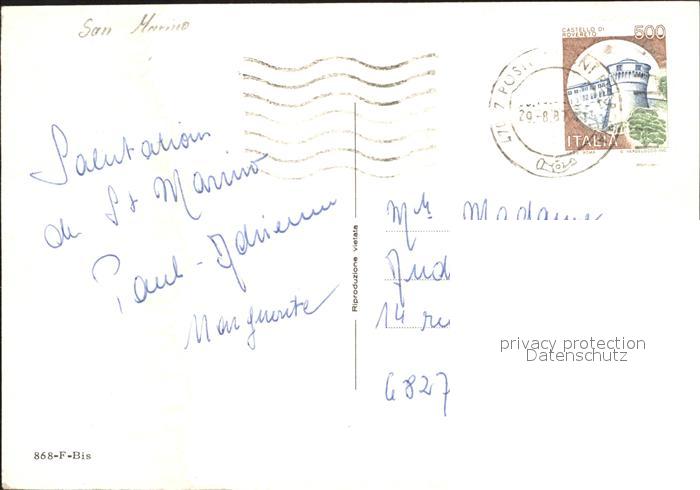 San Marino
CASTELLO DI
ROVERETO
500
ITALIA
29.-8.87
Salutations
de St Marino
Paul-Adrienne
Marguerite
Riproduzione vietata
Mr Madame
14
6827
privacy protection
Datenschutz
868-F-Bis